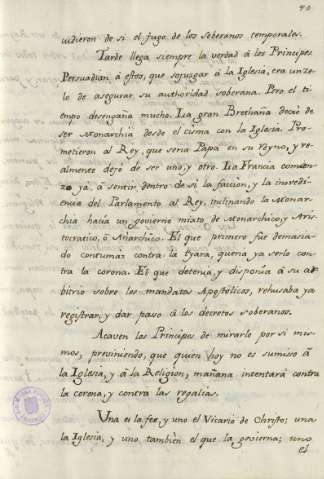 42
vidieron de si el fugo de los Soberanos temporales.
Tarde llega siempre la verdad â los Principes.
Persuadian â estos, que sojuzgar â la Iglesia, era un ze-
lo de asegurar su authoridad soberana. Pero el ti-
empo desengaña mucho. La gran Brethaña dexò de
ser Monarchia desde el cisma con la Iglesia. Pro-
metieron al Rey, que seria Papa en su reyno, y re-
almente dejò de ser uno, y otro. La Francia comien-
zo ya â sentir dentro de si la faccion, y la inovedi-
encia del Parlamento al Rey, inclinando la Monar-
chia hacia un govierno mixto de Monarchico, y Aris-
tocratico, ô Anarchico. El que primero fue demasia-
do contumas contra la tyara, queria ya serlo con-
tra la corona. El que detenia, y disponia â su ar-
bitrio sobre los mandatos Apostolicos, rehusaba ya
registrar, y dar paso â los decretos soberanos.
Acaven los Principes de mirarlo por si mis-
mos, previniendo, que quien hoy no es sumiso â
la Iglesia, y â la Religion, mañana intentarà contra
la corona, y contra las regalias.
Una es la fee, y uno el Vicario de Christo; una
la Iglesia, y uno tambien el que la govierna; uno
el